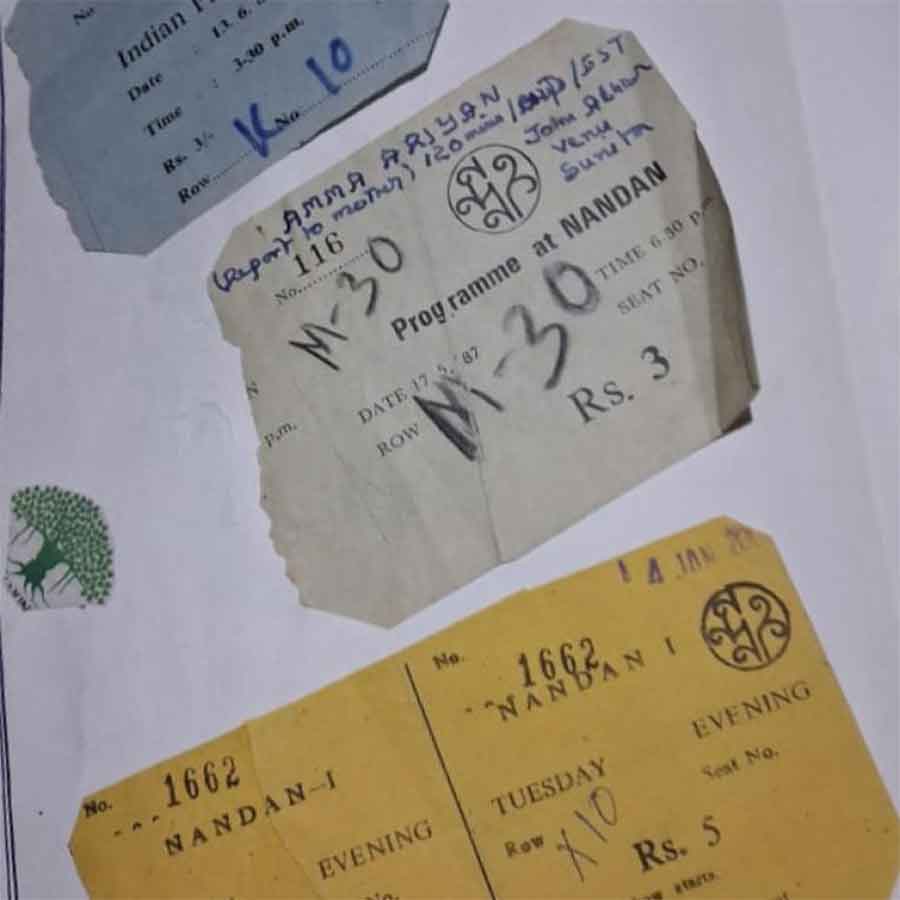 No
Indian
Date : 13. 6.
Time : 3-30 p.m.
Rs. 3/-
Row K No 10
AMMA ARIYAN
(Report to mother) 120 mins / / EST
John Abraham
Venu
Sunita
No. 116
M-30
Programme at NANDAN
DATE 17. 5. '87 TIME 6-30 p.m.
ROW M-30 SEAT NO.
Rs. 3
p.m.
14 JAN
No. 1662
NANDAN I
EVENING
TUESDAY
Seat No.
Row X10
Rs. 5
starts.
No. 1662
NANDAN-I
EVENING
No.